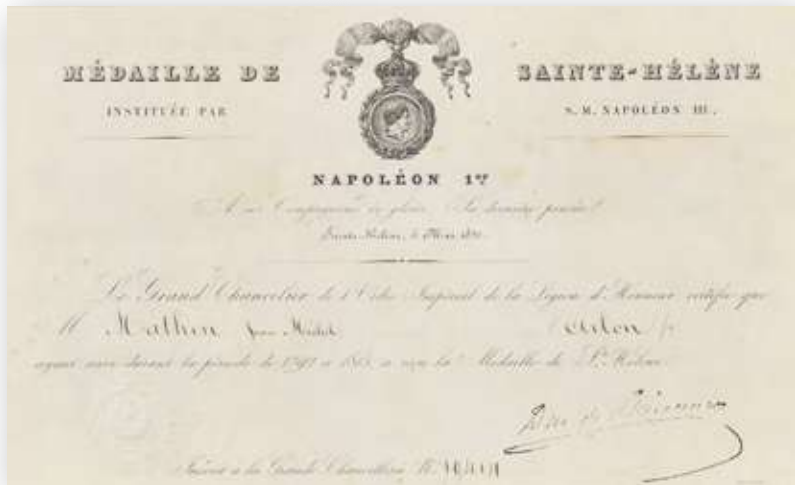 MÉDAILLE DE SAINTE-HÉLÈNE
INSTITUÉE PAR S. M. NAPOLÉON III.
NAPOLÉON 1er
A ses Compagnons de gloire, Sa dernière pensée!
Sainte-Hélène, 5 Mai 1821.
Le Grand Chancelier de l'Ordre Impérial de la Légion d'Honneur certifie que
M Mathen Jean Michel, Arlon
ayant servi durant la période de 1792 à 1815, a reçu la Médaille de Ste Hélène.
Inscrit à la Grande Chancellerie, No